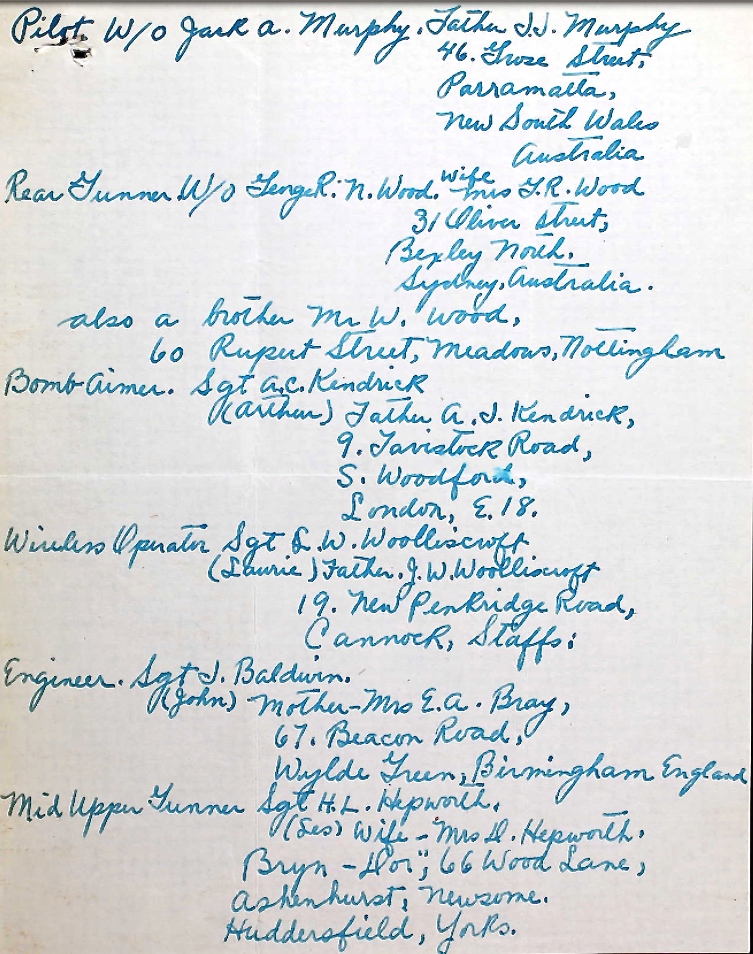 Pilot. W/o Jack A. Murphy. Father J.J. Murphy
46. Grose Street,
Parramatta,
New South Wales
Australia
Rear Gunner W/o George R. N. Wood. Wife Mrs G.R. Wood
31 Oliver Street,
Bexley North.
Sydney, Australia.
also a brother Mr W. Wood,
60 Rupert Street, Meadows, Nottingham
Bomb-Aimer. Sgt A.C. Kendrick
(Arthur) Father A. J. Kendrick,
9. Tavistock Road,
S. Woodford,
London, E.18.
Wireless Operator Sgt L.W. Woolliscroft
(Laurie) Father. J.W. Woolliscroft
19. New Penkridge Road,
Cannock, Staffs:
Engineer. Sgt J. Baldwin.
(John) Mother-Mrs E.A. Bray,
67. Beacon Road,
Wylde Green, Birmingham England
Mid Upper Gunner Sgt H.L. Hepworth.
(Les) Wife-Mrs D. Hepworth.
Bryn-Dor", 66 Wood Lane,
Ashenhurst, Newsome.
Huddersfield, Yorks.